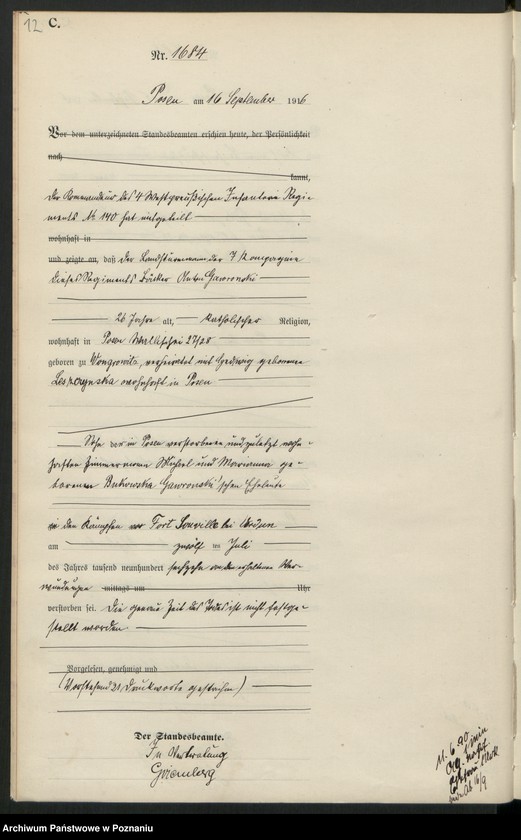 12 C.
Nr. 1684
Posen am 16 September 1916
Vor dem unterzeichneten Standesbeamten erschien heute, der Persönlichkeit
nach
kannt,
der Kommandeur des 4 Westpreußischen Infanterie Regi-
ments No 140 hat mitgeteilt
wohnhaft in
und zeigte an, daß der Landsturmmann der 7 Kompagnie
dieses Regiments Bäcker Anton Gawronski
26 Jahre alt, katholischer Religion,
wohnhaft in Posen Wallischei 27/28
geboren zu Wongrowitz, verheiratet mit Hedwig geborenen
Leszczynska wohnhaft in Posen
Sohn der in Posen verstorbenen und zuletzt wohn-
haften Zimmermann Michael und Marianna ge-
borenen Bukowska Gawronski'schen Eheleute
in den Kämpfen vor Fort Souville bei Verdun
am zwölf ten Juli
des Jahres tausend neunhundert sechzehn an den erhaltenen Ver-
wundungen mittags um Uhr
verstorben sei. Die genaue Zeit des Todes ist nicht festge-
stellt worden.
Vorgelesen, genehmigt und
(Vorstehend 21 Druckworte gestrichen)
Der Standesbeamte.
In Vertretung
11. 6. 90
Archiwum Państwowe w Poznaniu